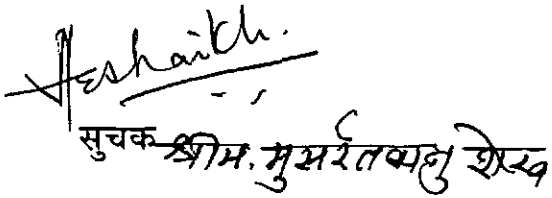 सुचक श्रीम. मुसर्रतबानु शेख